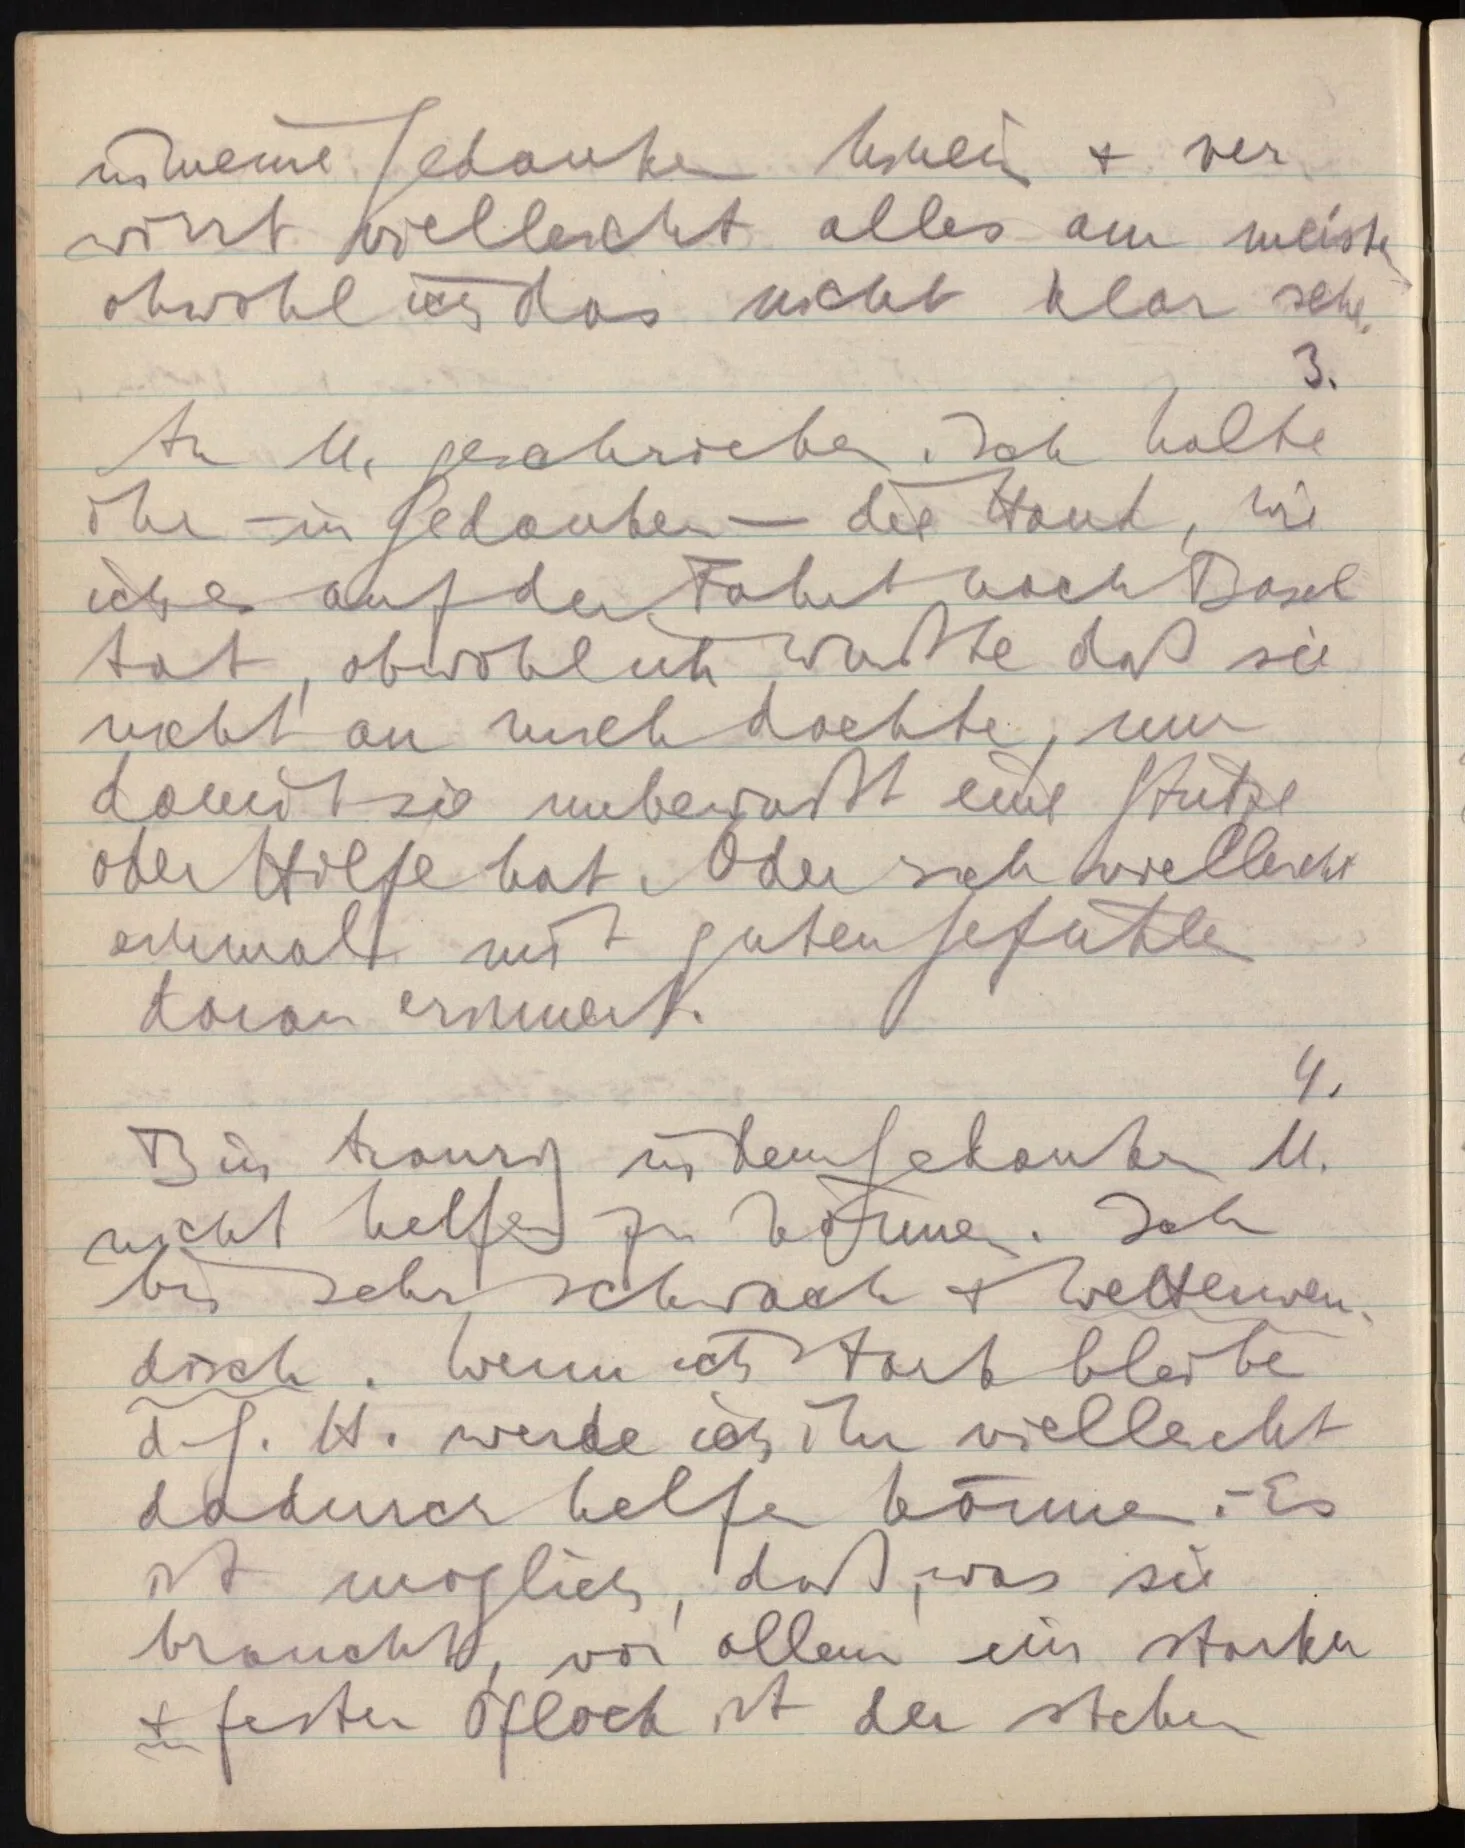 in meine Gedanken hinein + ver
wirrt vielleicht alles am meisten
obwohl ich das nicht klar sehe.
3.
An M. geschrieben. Ich halte
ihr – in Gedanken – die Hand, wie
ich es auf der Fahrt nach Basel
tat, obwohl ich wußte daß sie
nicht an mich dachte, nur
damit sie unbewußt eine Stütze
oder Hilfe hat. Oder sich vielleicht
einmal mit guten Gefühlen
daran erinnert.
4.
Bin traurig in dem Gedanken M.
nicht helfen zu können. Ich
bin sehr schwach + wetterwen
disch. Wenn ich stark bleibe
d. G. H. werde ich ihr vielleicht
dadurch helfen können. – Es
ist möglich, daß, was sie
braucht, vor allem ein starker
+ fester Pflock ist der stehen